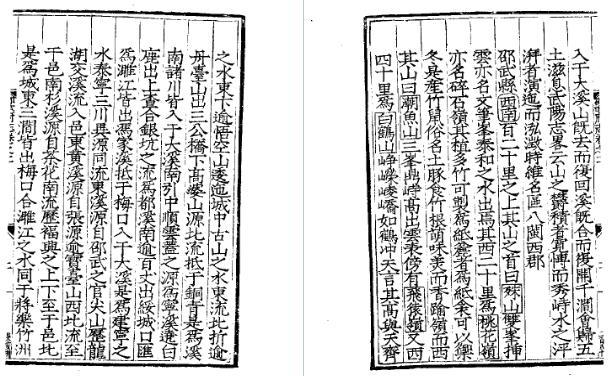 入于大溪山旣去而復回溪旣合而復闢千澗會歸五
土滋息武陽志畧云山之鬱積者實博而秀峙水之洴
湃者演迤而泓澂時維名區八閩西郡
邵武縣西南百二十里之上其山之首曰殊山雙峯揷
雲亦名文筆峯泰和之水出焉其西二十里爲桃花嶺
亦名碎石嶺其植多竹可製爲紙者爲紙可以禦
冬是産竹鼠俗名土豚食竹根萌味美而香踰嶺而西
其山曰潮魚山三峯鼎峙高出雲表傍有飛猿嶺又西
四十里爲白鶴山崢嶸峻嶠如鶴冲天言其高與天齊
之水東下逾悟空山逶迤城中古山之水東流北折逾
丹臺山出三公橋下高山源北流抵于銅青是爲溪
南諸川皆入于大溪南引中順雲蓋之源爲寧溪邐臼
鹿出上查合銀坑之流爲都溪南逾百丈出綏城口匯
爲濉江皆出馮家溪抵于梅口入于大溪是爲建寧之
水泰寧三川異源同流東溪源自邵武之官尖山歷龍
湖交溪流入邑東黄溪源自張源逾寶臺山西北流至
于邑南杉溪源自茶花南流歷福興之上下至于邑北
是爲城東三澗皆出梅口合濉江之水同于將樂竹洲